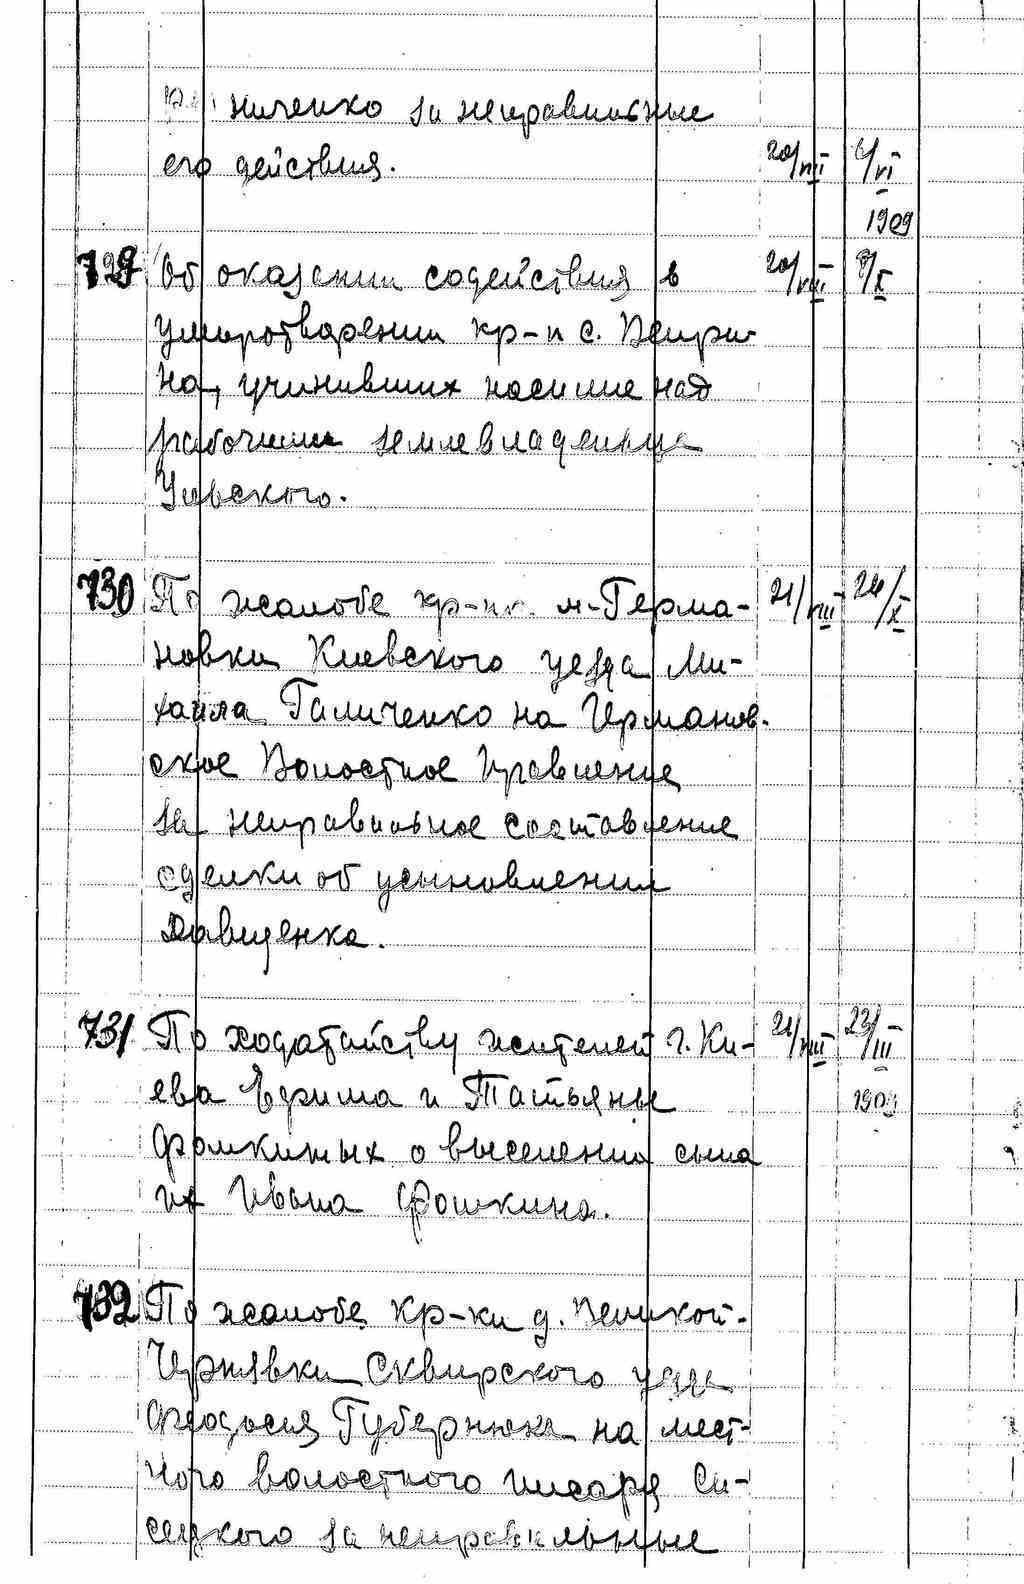 ниченко за неправильные
его действия. 20/VIII 4/VI
1909
729 Об оказании содействия в 20/VIII 9/X
умиротворении кр-н с.
на, учинивших насилие над
рабочими землевладельца
Ульского.
730 По жалобе кр-на м-Герма- 21/VIII 24/X
новки Киевского уезда Ми-
хаила Галиченко на Германов-
ское Волостное Правление
за неправильное составление
сделки об усыновлении
Давиденка.
731 По ходатайству жителей г. Ки- 21/VIII 23/III
ева Ефима и Татьяны 1909
Фомкиных о выселении сына
их Ивана Фомкина.
732 По жалобе кр-ки д. Великой-
Чернявки Сквирского уезда
Феодосия Губернюка на мест-
ного волостного писаря Си-
сецкого за неправильные